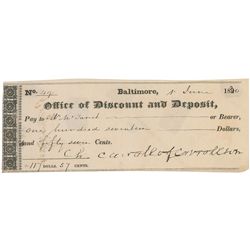 No. 49 Baltimore, 1 June 18
Office of Discount and Deposit,
Pay to or Bearer,
one hundred seventeen Dollars,
and fifty seven Cents.
Ch Carroll of Carrollton
117 DOLLS. 57 CENTS.